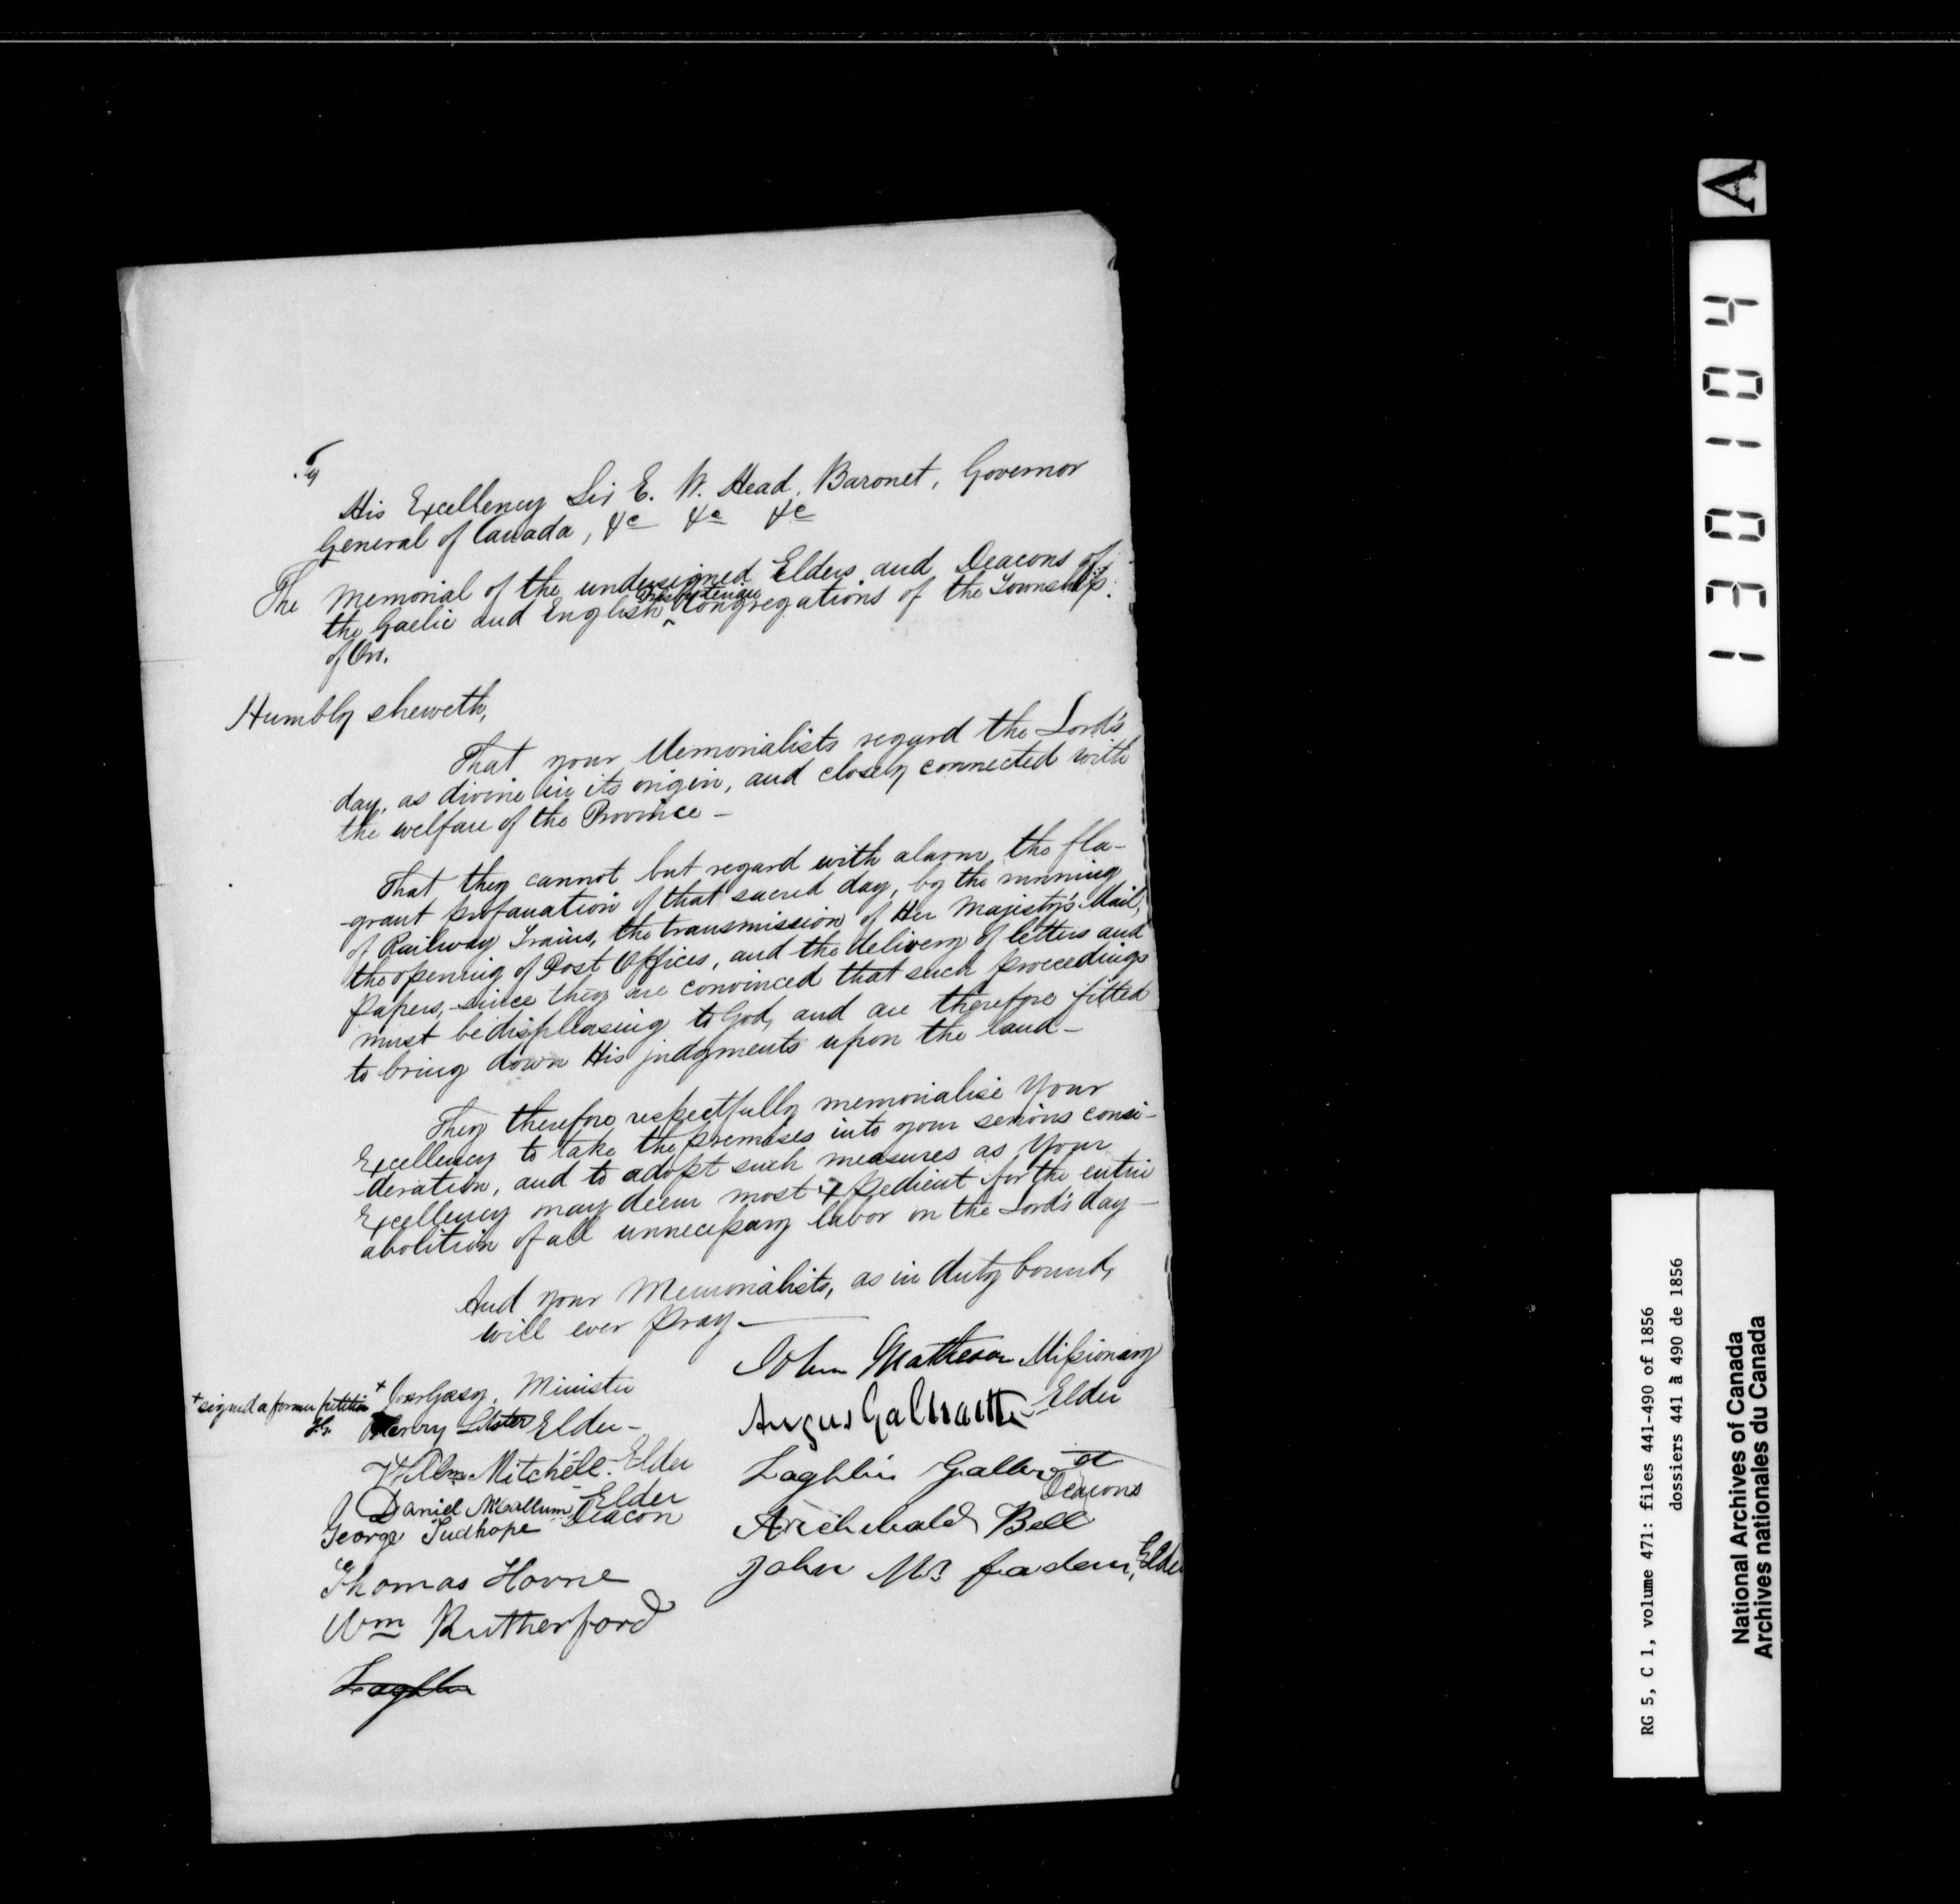 To
His Excellency Sir E. W. Head, Baronet, Governor
General of Canada, &c &c &c
The Memorial of the undersigned Elders and Deacons of
the Gaelic and English Presbyterian Congregations of the Township
of Oro.
Humbly sheweth,
That your Memorialists regard the Lord's
day, as divine in its origin, and closely connected with
the welfare of the Province -
That they cannot but regard with alarm, the fla-
-grant profanation of that sacred day, by the running
of Railway Trains, the transmission of Her Majesty's Mail,
the opening of Post Offices, and the delivery of letters and
papers, - since they are convinced that such proceedings
must be displeasing to God, and are therefore fitted
to bring down His judgments upon the land -
They therefore respectfully memorialise Your
Excellency to take the premises into your serious consi-
-deration, and to adopt such measures as Your
Excellency may deem most expedient for the entire
abolition of all unnecessary labor on the Lord's day -
And your Memorialists, as in duty bound,
will ever pray -
John Matheson Missionary
Angus Galbraith Elder
Laghlin
Deacons
Archibald Bell
John Mc fadem, Elder
+ signed a former petition
+ Minister
Henry Elder -
Willm Mitchell. Elder
Daniel McCallum, Elder
George Tudhope Deacon
Thomas Horne
Wm Rutherford
Laghlin
A
130104
RG 5, C 1, volume 471: files 441-490 of 1856
dossiers 441 à 490 de 1856
National Archives of Canada
Archives nationales du Canada